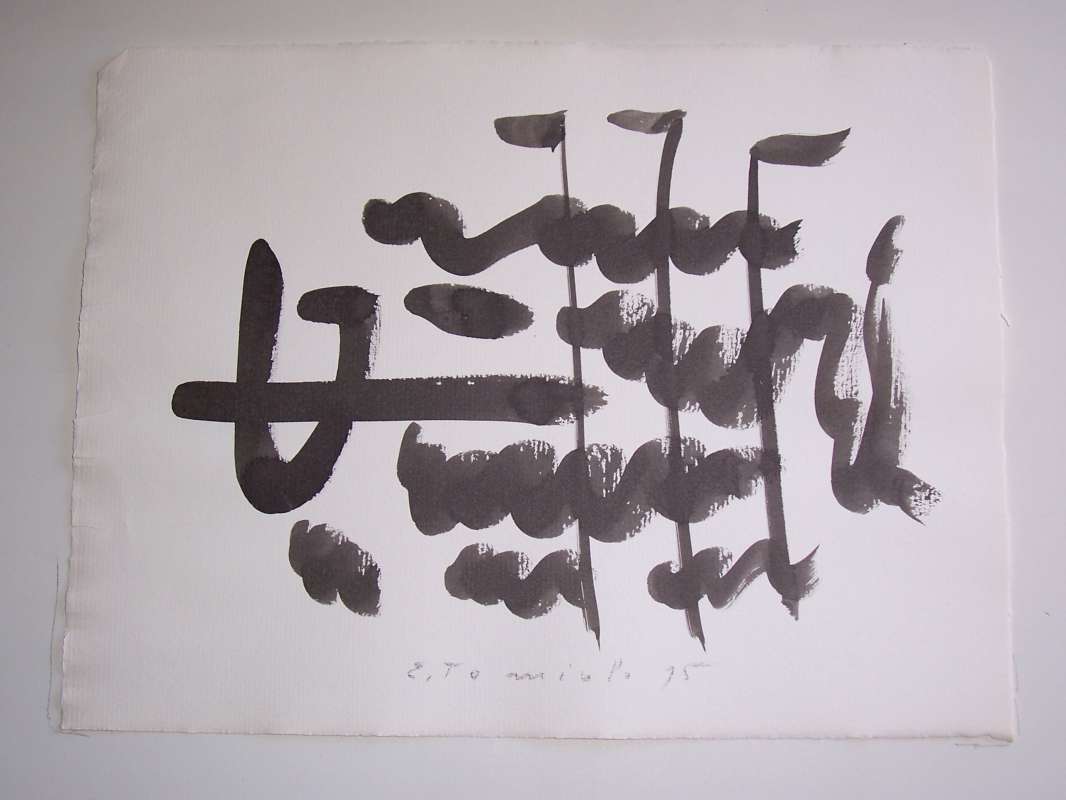 E. Tomiolo 95